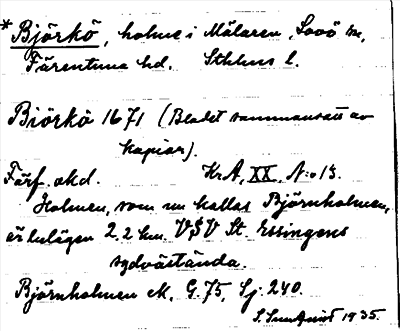 *Björkö, holme i Mälaren, Lovö sn,
Färentuna hd. Sthlms l.
Biörkö 1671 (Bladet sammansatt av
kopior).
Förf. okd. KrA, XX, N:o 13.
Holmen, som nu kallas Björnholmen,
är belägen 2.2 km. VSV St. Essingens
sydvästända.
Björnholmen eK. G.75, Lj. 240.
S. 1935.